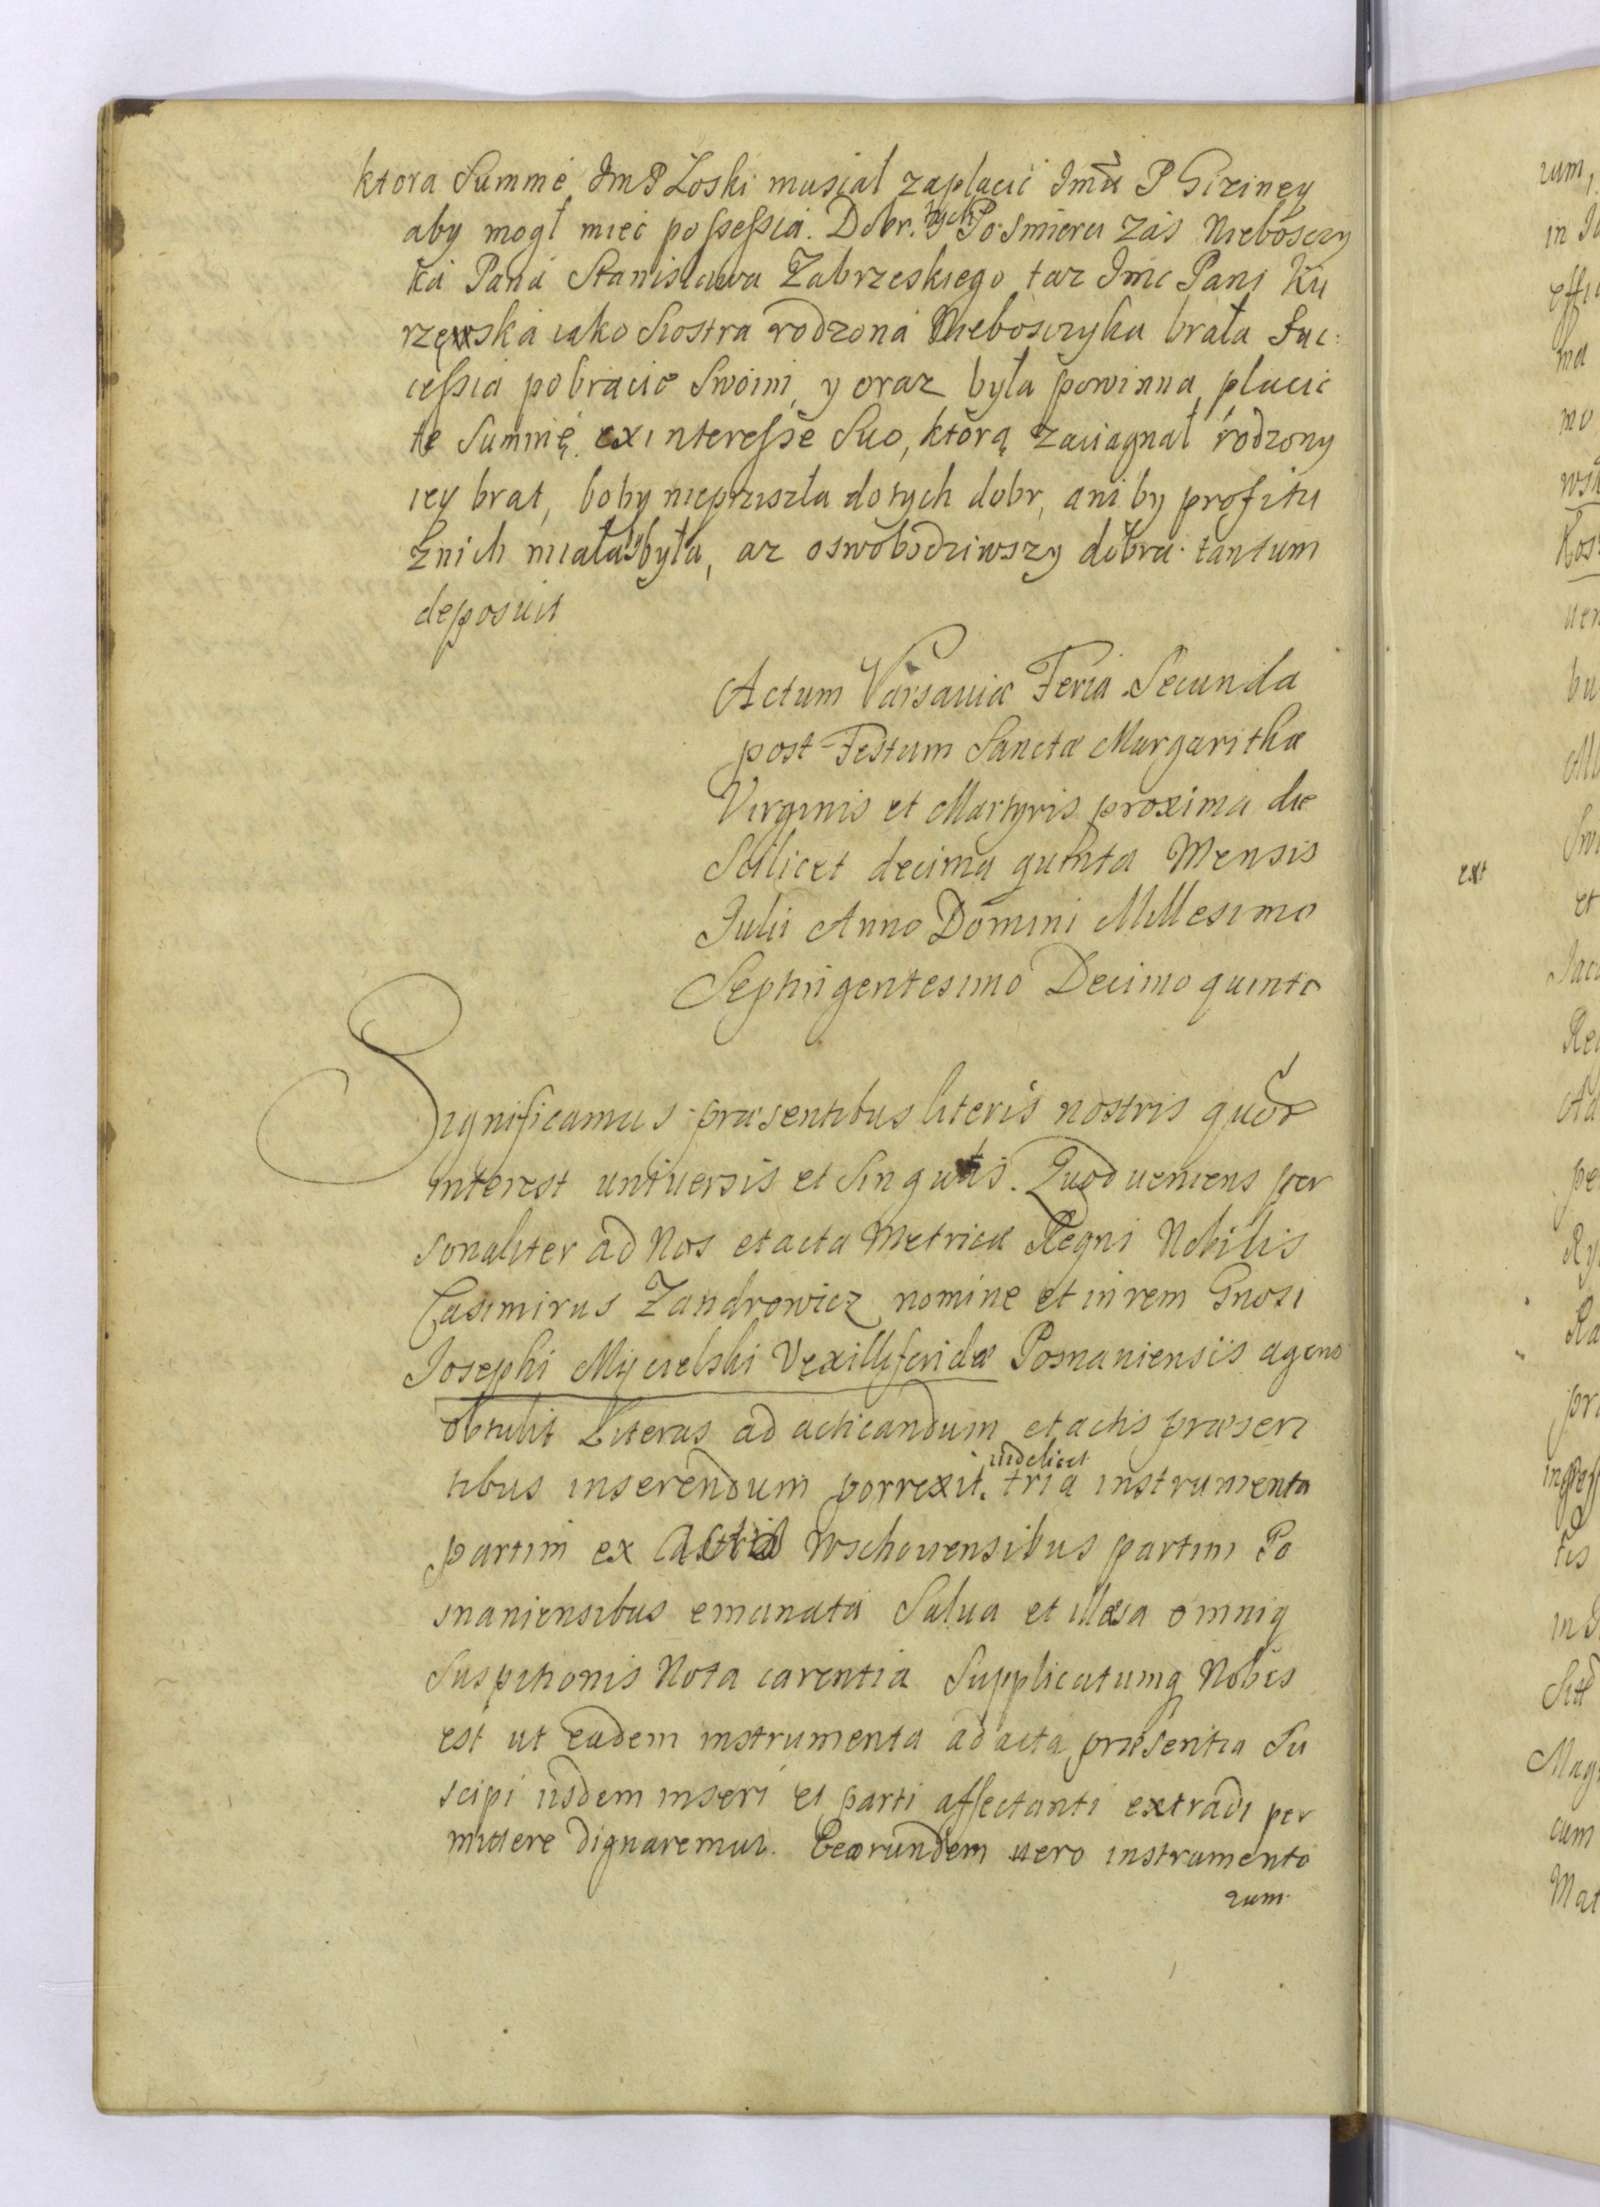 ktora Summę ImP Łoski musiał zapłacić Imũ P Giziney
aby mogł mieć possessią. Dobr. tych Po smierci zás Niebosczy
ká Paná Stanisława Zabrzeskiego taz Imć Pani Ku
rzęwská iako Siostra rodzoná Niebosczyka brała Suc:
cessią pobracie Swoim, y oraz była powinna płacić
tę Summę ex interesse Suo, ktorą zaciągnął rodzony
iey brat, boby nieprziszła dotych dobr, ani by profitu
znich miała była, az oswobodziwszy dobra tantum
deposuit
Actum Varsaviæ Feria Secunda
post Festum Sanctæ Margarithæ
Virginis et Martyris proxima die
Scilicet decima quinta Mensis
Julii Anno Domini Millesimo
Septingentesimo Decimo quinto
Significamus præsentibus literis nostris quõr
interest universis et Singulis. Quod veniens per
sonaliter ad Nos et acta Metricæ Regni Nobilis
Casimirus Zandrowicz nomine et in rem Gnosi
Josephi Mycielski Vexilliferidæ Posnaniensis agens
obtulit Literas ad acticandum et actis præsen
tibus inserendum porrexit. videlicet tria instrumenta
partim ex Actis Wschovensibus partim Po
snaniensibus emanata Salva et illæsa omniq
Suspitionis Nota carentia Supplicatumq Nobis
est ut eadem instrumenta ad acta præsentia Su
scipi iisdem inseri et parti affectanti extradi per
mittere dignaremur. Eeorundem vero instrumento
rum
rum,
in
ext
et
pe
Ra
in
cum
Mat